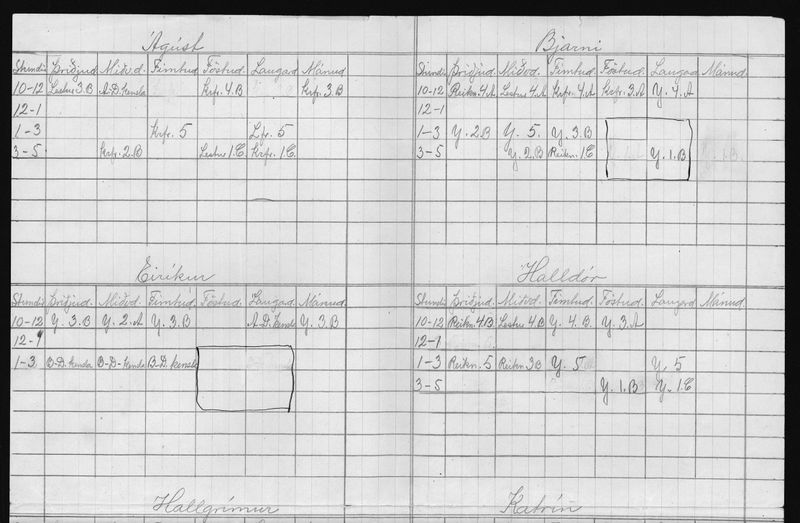 Ágúst
Stundir Þriðjud. Miðvd. Fimtud. Föstud. Laugad. Mánud.
10-12 Lestur 3.B A-D. kensla Krfr. 4.B Krfr. 3.B
12-1
1-3 Krfr. 5 Lfr. 5
3-5 Krfr. 2.B Lestur 1.C Krfr. 1.C
Bjarni
Stundir Þriðjud. Miðvd. Fimtud. Föstud. Laugad. Mánud.
10-12 Reikn. 4.A Lestur 4.A Krfr. 4.A Krfr. 3.A Y. 4.A
12-1
1-3 Y. 2B Y. 5. Y. 3.B
3-5 Y. 2.B Reikn. 1C Y. 1.B
Eiríkur
Stundir Þriðjud. Miðvd. Fimtud. Föstud. Laugad. Mánud.
10-12 Y. 3.B Y. 2.A Y. 3.B A.D. kensla Y. 3.B
12-1
1-3 B-D. kensla B-D. kensla B-D. kensla
Halldór
Stundir Þriðjud. Miðvd. Fimtud. Föstud. Laugard Mánud.
10-12 Reikn. 4.B. Lestur 4.B Y. 4.B Y. 3.A
12-1
1-3 Reikn. 5 Reikn. 3B Y. 5 Y. 5
3-5 Y. 1.B Y. 1.C
Hallgrímur
Katrín